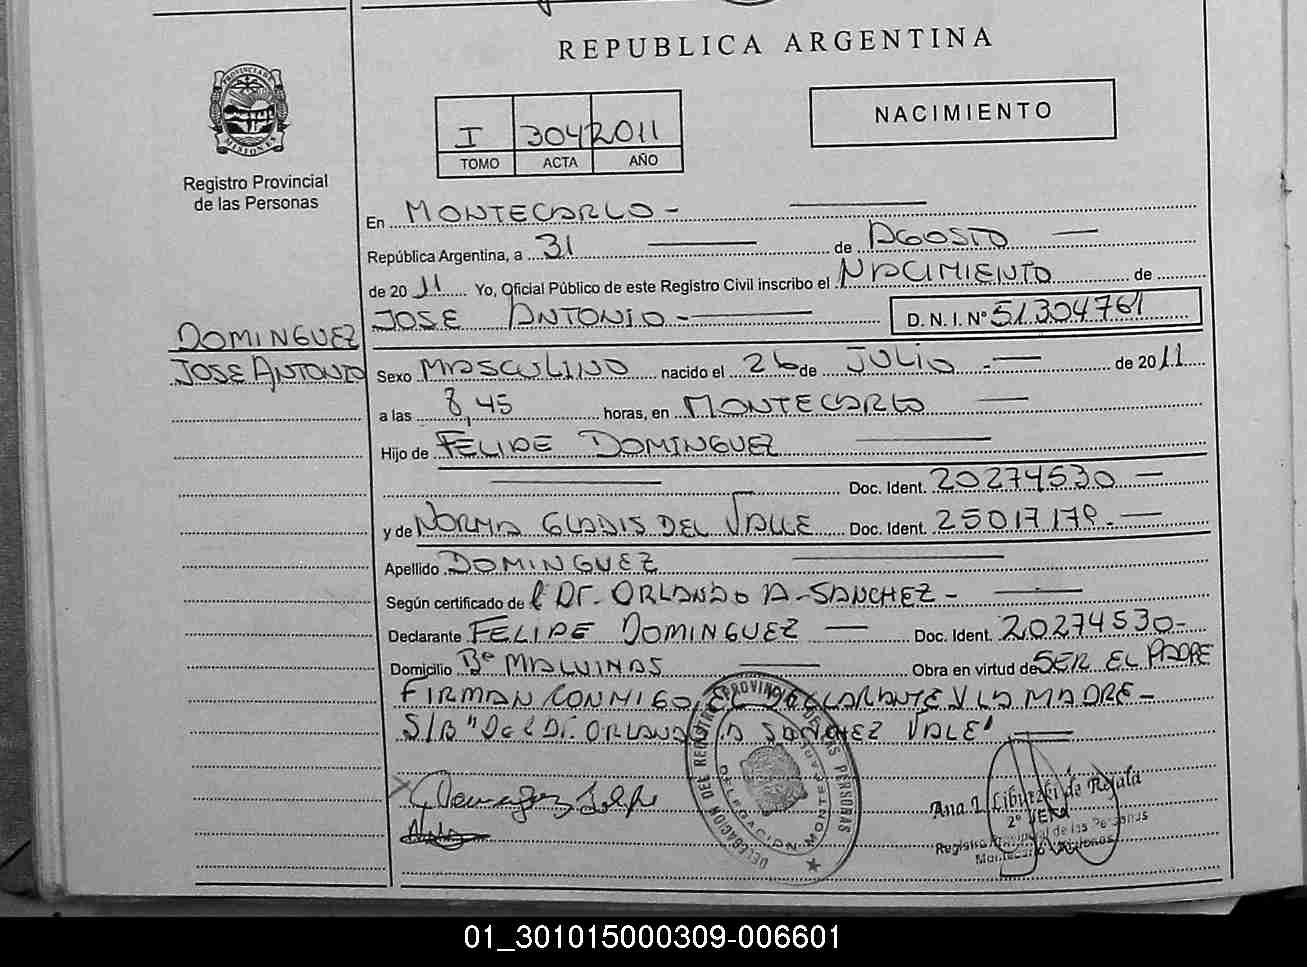 REPUBLICA ARGENTINA
PROVINCIA DE MISIONES
Registro Provincial
de las Personas
I 304 2011
TOMO ACTA AÑO
NACIMIENTO
En MONTECARLO -
República Argentina, a 31 de AGOSTO
de 2011 Yo, Oficial Público de este Registro Civil inscribo el NACIMIENTO de
JOSE ANTONIO - D. N. I. Nº 51304761
DOMINGUEZ
JOSE ANTONIO
Sexo MASCULINO nacido el 26 de JULIO - de 2011
a las 8,45 horas, en MONTECARLO
Hijo de FELIPE DOMINGUEZ
Doc. Ident. 20274530
y de NORMA GLADIS DEL VALLE Doc. Ident. 25017179.
Apellido DOMINGUEZ
Según certificado de l DR. ORLANDO A. SANCHEZ -
Declarante FELIPE DOMINGUEZ Doc. Ident. 20274530-
Domicilio Bº MALVINAS Obra en virtud de SER EL PADRE
FIRMAN CONMIGO, EL DECLARANTE Y LA MADRE -
S/B "Del Dr. ORLANDO A SANCHEZ VALE"
DELEGACION DEL REGISTRO PROVINCIAL DE LAS PERSONAS
DELEGACION MONTECARLO
Ana L. de Rejala
Registro Provincial de las Personas
Montecarlo Misiones
01_301015000309-006601